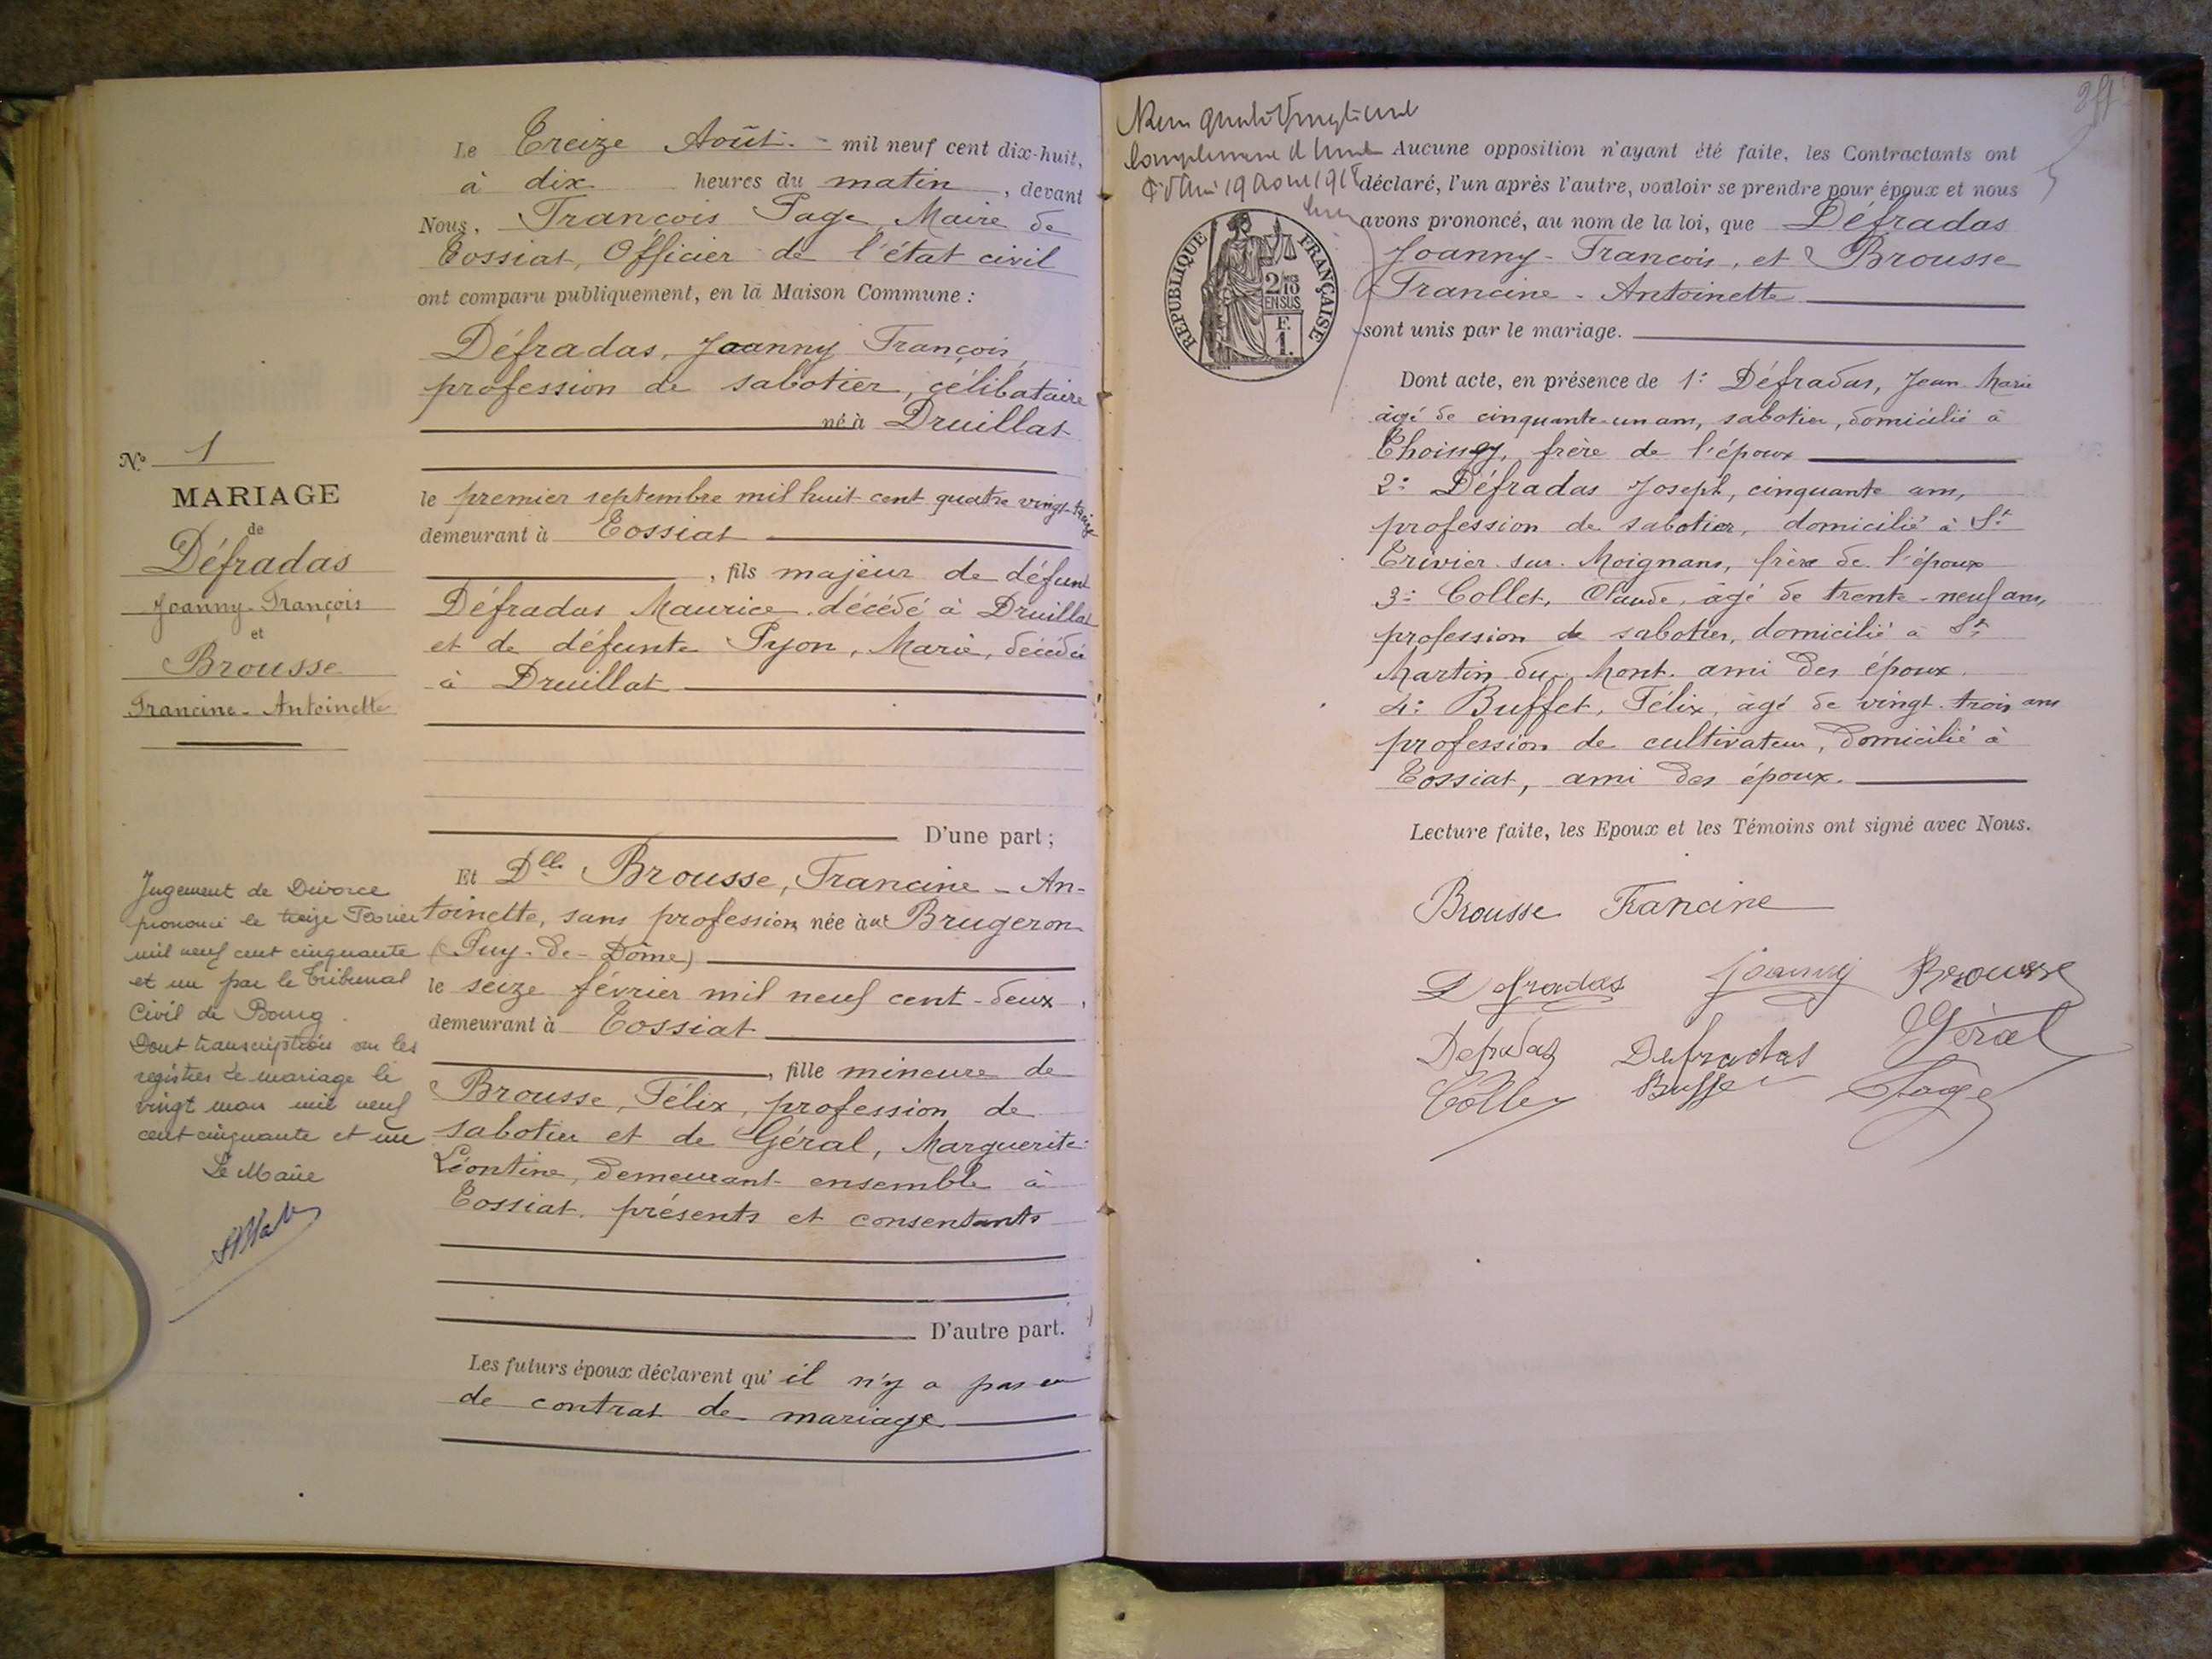 Le Treize Août. - mil neuf cent dix-huit,
à dix heures du matin, devant
Nous, François Page, Maire de
Tossiat, Officier de l'état civil
ont comparu publiquement, en la Maison Commune :
Défradas, Joanny François,
profession de sabotier, célibataire
né à Druillat
le premier septembre mil huit cent quatre vingt-treize
demeurant à Tossiat
, fils majeur de défunt
Défradas Maurice, décédé à Druillat
et de défunte Pyon, Marie, décédée
à Druillat
D'une part ;
Et Dlle Brousse, Francine - An-
toinette, sans profession, née à au Brugeron
(Puy-de-Dôme)
le seize février mil neuf cent-deux,
demeurant à Tossiat
, fille mineure de
Brousse, Félix, profession de
sabotier et de Géral, Marguerite-
Léontine, demeurant ensemble à
Tossiat. présents et consentants
D'autre part.
Les futurs époux déclarent qu'il n'y a pas eu
de contrat de mariage
N° 1
MARIAGE
de
Défradas
Joanny-François
et
Brousse
Francine-Antoinette
Jugement de Divorce
prononcé le treize Février
mil neuf cent cinquante
et un par le Tribunal
Civil de Bourg.
Dont transcription sur les
registres de mariage le
vingt mars mil neuf
cent cinquante et un
Le Maire
19 Aout 1918
Aucune opposition n'ayant été faite, les Contractants ont
déclaré, l'un après l'autre, vouloir se prendre pour époux et nous
avons prononcé, au nom de la loi, que Défradas
Joanny-François, et Brousse
Francine-Antoinette
sont unis par le mariage.
REPUBLIQUE FRANÇAISE
2/10 EN SUS
F. 1.
Dont acte, en présence de 1° Défradas, Jean Marie
âgé de cinquante-un ans, sabotier, domicilié à
frère de l'époux
2° Défradas Joseph, cinquante ans,
profession de sabotier, domicilié à St
Trivier sur Moignans, frère de l'époux
3° Collet, Claude, âgé de trente-neuf ans,
profession de sabotier, domicilié à St
Martin du Mont. ami des époux.
4° Buffet, Félix, âgé de vingt-trois ans
profession de cultivateur, domicilié à
Tossiat, ami des époux.
Lecture faite, les Epoux et les Témoins ont signé avec Nous.
Brousse Francine
Defradas Joanny Brousse
Defradas Defradas Géral
Collet Buffet Page